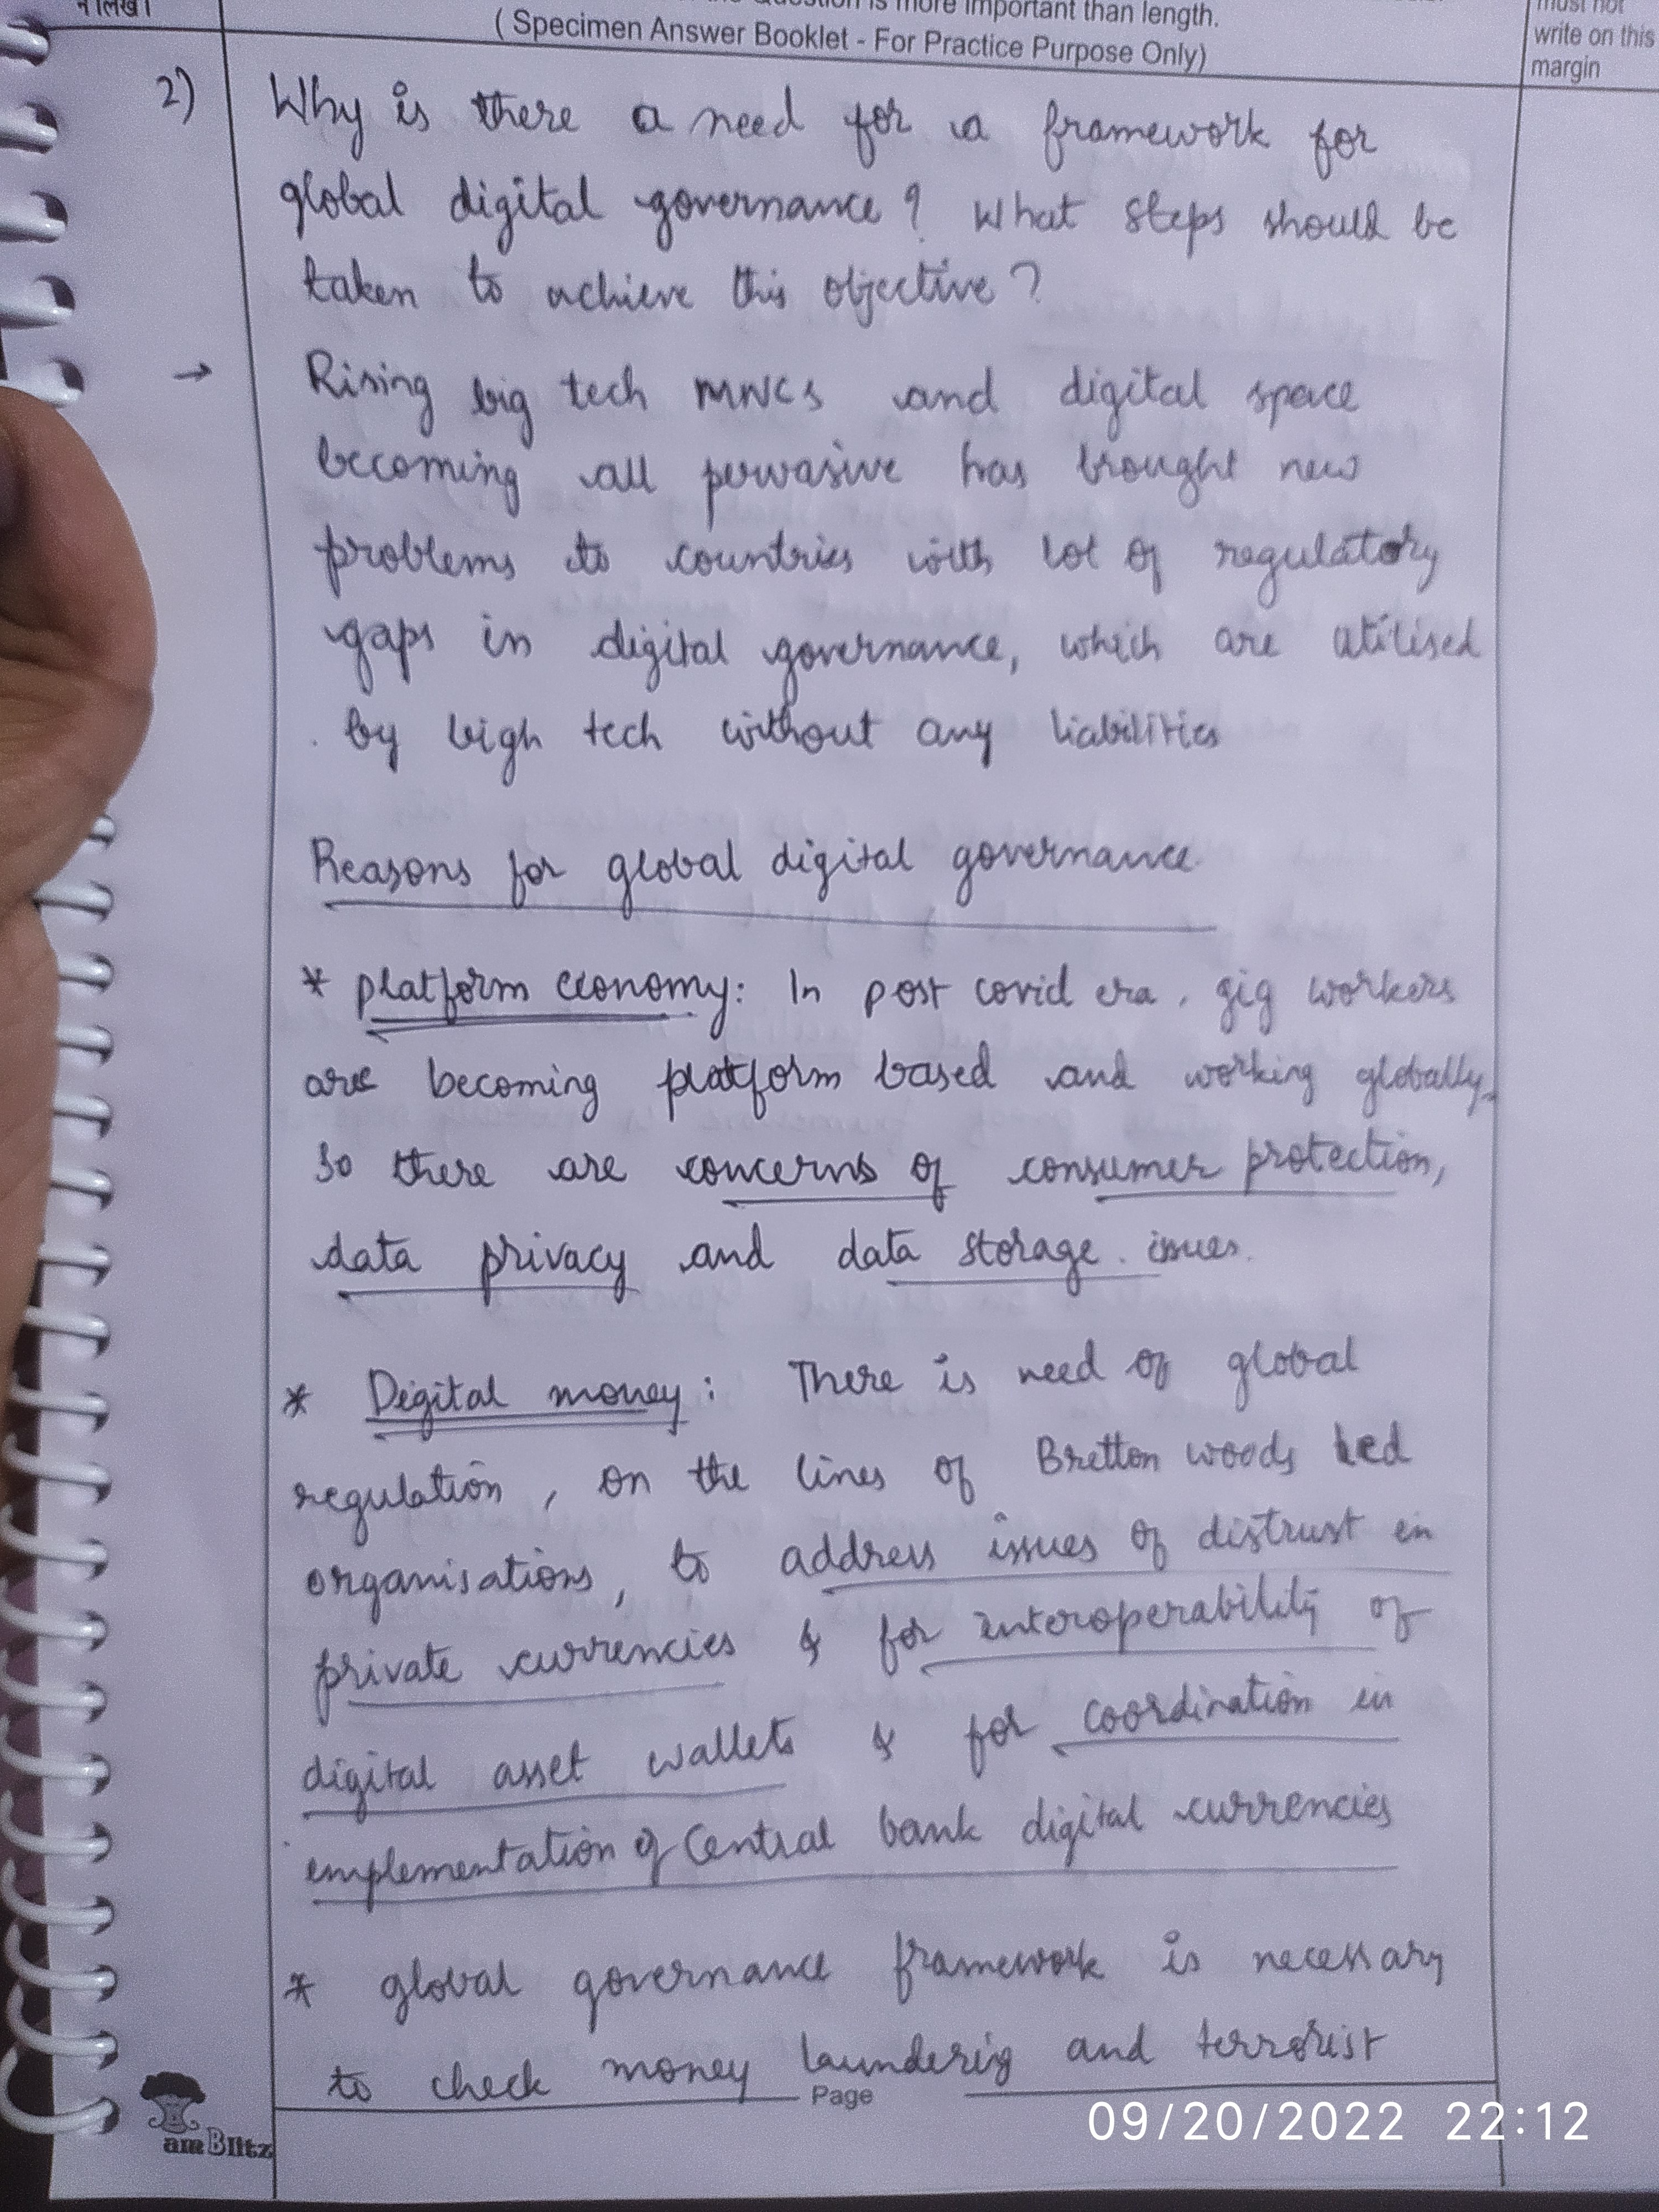 न लिखें।
is more important than length.
must not
( Specimen Answer Booklet - For Practice Purpose Only)
write on this
margin
2) Why is there a need for a framework for
global digital governance? What steps should be
taken to achieve this objective?
→ Rising big tech MNCs and digital space
becoming all pervasive has brought new
problems to countries with lot of regulatory
gaps in digital governance, which are utilised
by high tech without any liabilities
Reasons for global digital governance
* platform economy: In post covid era, gig workers
are becoming platform based and working globally.
So there are concerns of consumer protection,
data privacy and data storage issues.
* Digital money: There is need of global
regulation, on the lines of Bretton woods led
organisations, to address issues of distrust in
private currencies & for interoperability of
digital asset wallets & for coordination in
implementation of Central bank digital currencies
* global governance framework is necessary
to check money laundering and terrorist
Page
am Blitz
09/20/2022 22:12